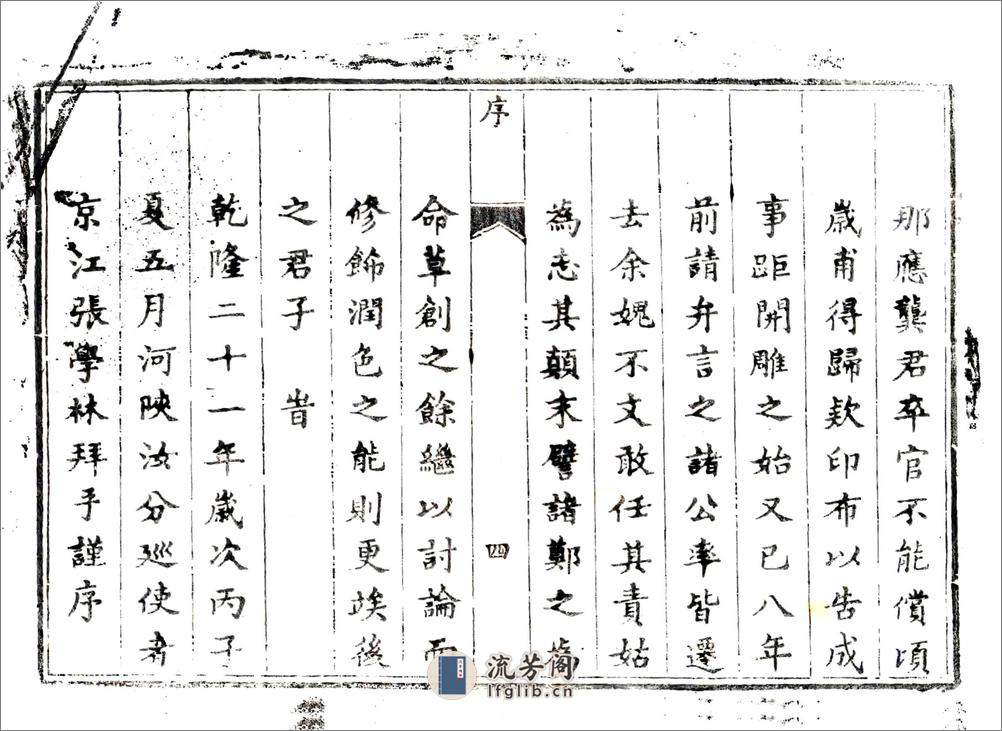 那應龔君卒官不能償頃
歲甫得歸欵印布以告成
事距開雕之始又已八年
前請弁言之諸公率皆遷
去余媿不文敢任其責姑
為志其顛末譬諸鄭之為
序
四
命草創之餘繼以討論而
修飾潤色之能則更竢後
之君子 旹
乾隆二十一年歲次丙子
夏五月河陝汝分巡使者
京江張學林拜手謹序
流芳阁
lfglib.cn